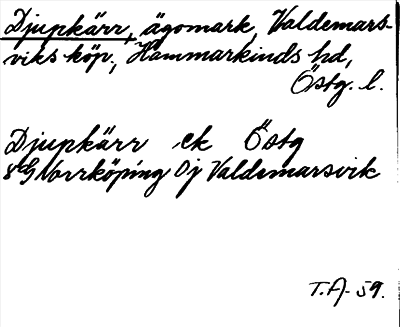 Djupkärr, ägomark, Valdemars-
viks köp., Hammarkinds hd,
Östg. l.
Djupkärr ek Östg
8G Norrköping Oj Valdemarsvik
T.A. 59.